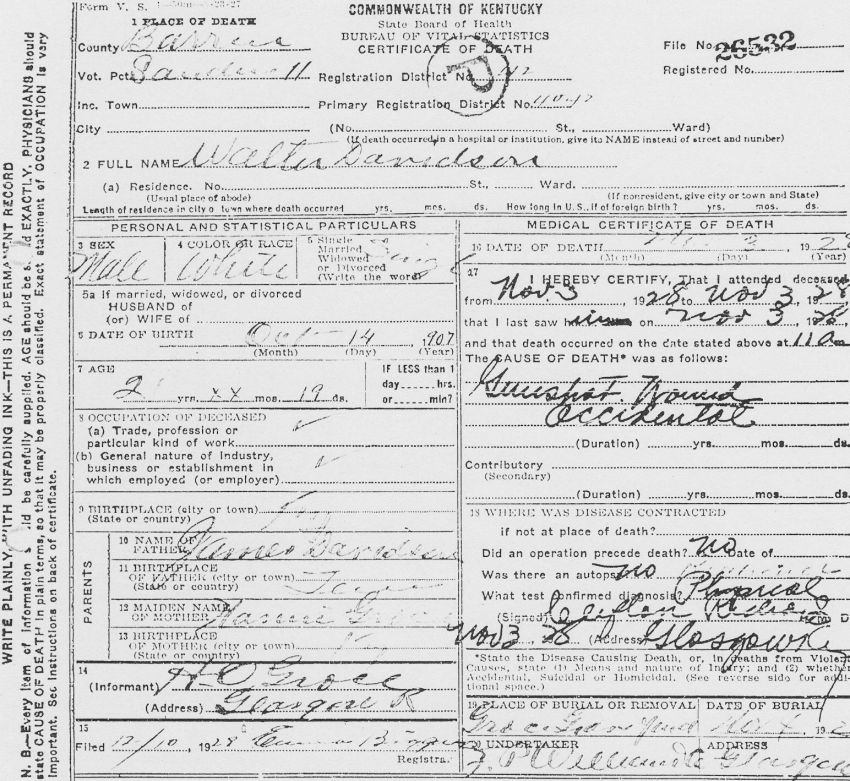 Form V. S.
COMMONWEALTH OF KENTUCKY
State Board of Health
BUREAU OF VITAL STATISTICS
CERTIFICATE OF DEATH
1 PLACE OF DEATH
County Barren
File No. 26532
Vot. Pct.
Registration District No. 42
Registered No.
Inc. Town
Primary Registration District No.
City
(No. St., Ward)
(If death occurred in a hospital or institution, give its NAME instead of street and number)
2 FULL NAME Walter Davidson
(a) Residence. No. St., Ward.
(Usual place of abode) (If nonresident, give city or town and State)
Length of residence in city or town where death occurred yrs. mos. ds. How long in U.S., if of foreign birth? yrs. mos. ds.
PERSONAL AND STATISTICAL PARTICULARS
3 SEX
Male
4 COLOR OR RACE
White
5 Single
Married
Widowed
or Divorced
(Write the word)
5a If married, widowed, or divorced
HUSBAND of
(or) WIFE of
6 DATE OF BIRTH Oct 14, 1907
(Month) (Day) (Year)
7 AGE
yrs. xx mos. 19 ds.
IF LESS than 1
day hrs.
or min?
8 OCCUPATION OF DECEASED
(a) Trade, profession or
particular kind of work
(b) General nature of industry,
business or establishment in
which employed (or employer)
9 BIRTHPLACE (city or town)
(State or country)
PARENTS
10 NAME OF
FATHER James Davidson
11 BIRTHPLACE
OF FATHER (city or town)
(State or country)
12 MAIDEN NAME
OF MOTHER
13 BIRTHPLACE
OF MOTHER (city or town) Ky
(State or country)
14
(Informant) H. O. Groce
(Address) Glasgow
15
Filed 12/10, 1928
Registrar
MEDICAL CERTIFICATE OF DEATH
16 DATE OF DEATH 3 1928
(Month) (Day) (Year)
17
I HEREBY CERTIFY, That I attended deceased
from Nov. 3, 1928 to Nov 3, 1928
that I last saw him on Nov 3, 1928,
and that death occurred on the date stated above at 11 am
The CAUSE OF DEATH* was as follows:
Gunshot Wound
Accidental
(Duration) yrs. mos. ds.
Contributory
(Secondary)
(Duration) yrs. mos. ds.
18 WHERE WAS DISEASE CONTRACTED
if not at place of death?
Did an operation precede death? No Date of
Was there an autopsy? No
What test confirmed diagnosis? Physical
(Signed)
Nov 3, 28 (Address) Glasgow Ky
*State the Disease Causing Death, or, in deaths from Violent
Causes, state (1) Means and nature of Injury; and (2) whether
Accidental, Suicidal or Homicidal. (See reverse side for addi-
tional space.)
19 PLACE OF BURIAL OR REMOVAL
DATE OF BURIAL
20 UNDERTAKER
ADDRESS
Glasgow
N. B.—Every item of information should be carefully supplied. AGE should be stated EXACTLY. PHYSICIANS should
state CAUSE OF DEATH in plain terms, so that it may be properly classified. Exact statement of OCCUPATION is very
important. See instructions on back of certificate.
WRITE PLAINLY, WITH UNFADING INK—THIS IS A PERMANENT RECORD